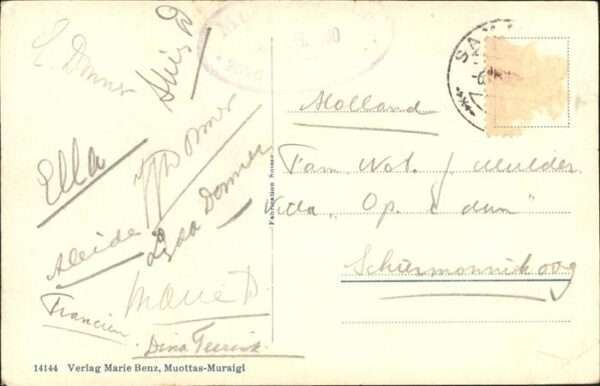 L. Donner
Ella
Donner
Lyda Donner
Aleida
Marie D.
Francien
Dina
Holland
Fam. Not. J. Mulder
Villa „Op 't duin"
Schiermonnikoog
Fabrication Suisse
14144 Verlag Marie Benz, Muottas-Muraigl